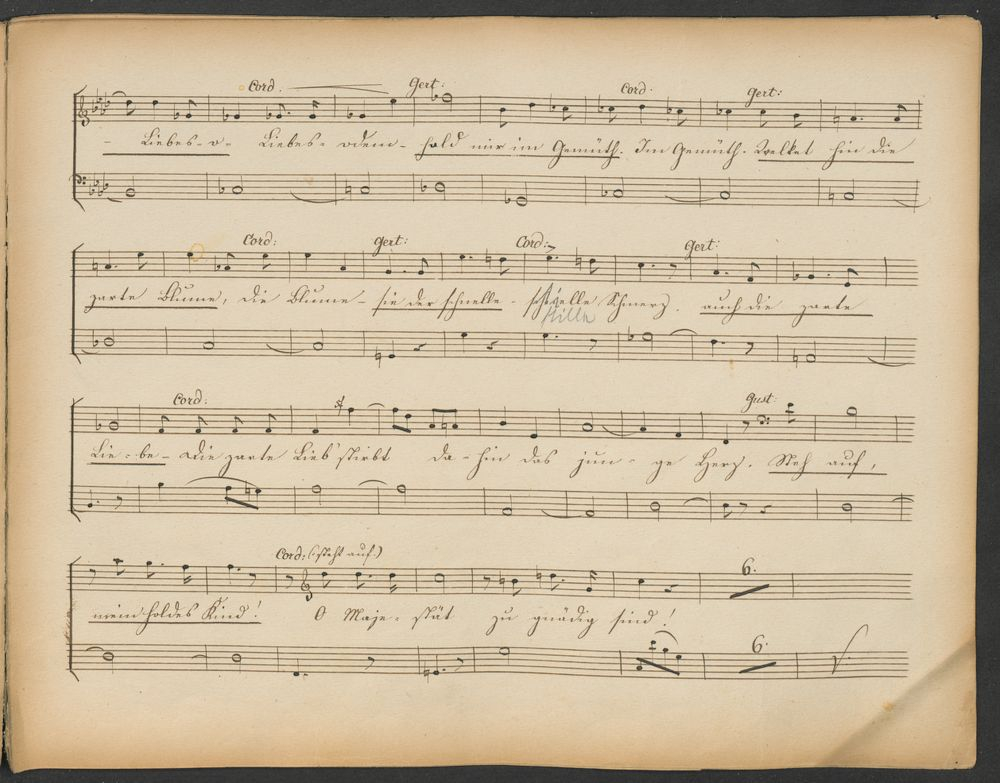 Cord: Gert: Cord: Gert:
- Liebes-o- Liebes- odem- hold mir im Gemüth. Im Gemüth. Welket hin die
Cord: Gert: Cord: Gert:
zarte Blume, die Blume- sie der schnelle- schnelle Schmerz. auch die zarte
stille
Cord: Gust:
Lie-be- die zarte Lieb' stirbt da-hin das jun-ge Herz. Steh auf,
Cord: (steht auf.)
mein holdes Kind! O Maje-stät zu gnädig sind!
6.
6.